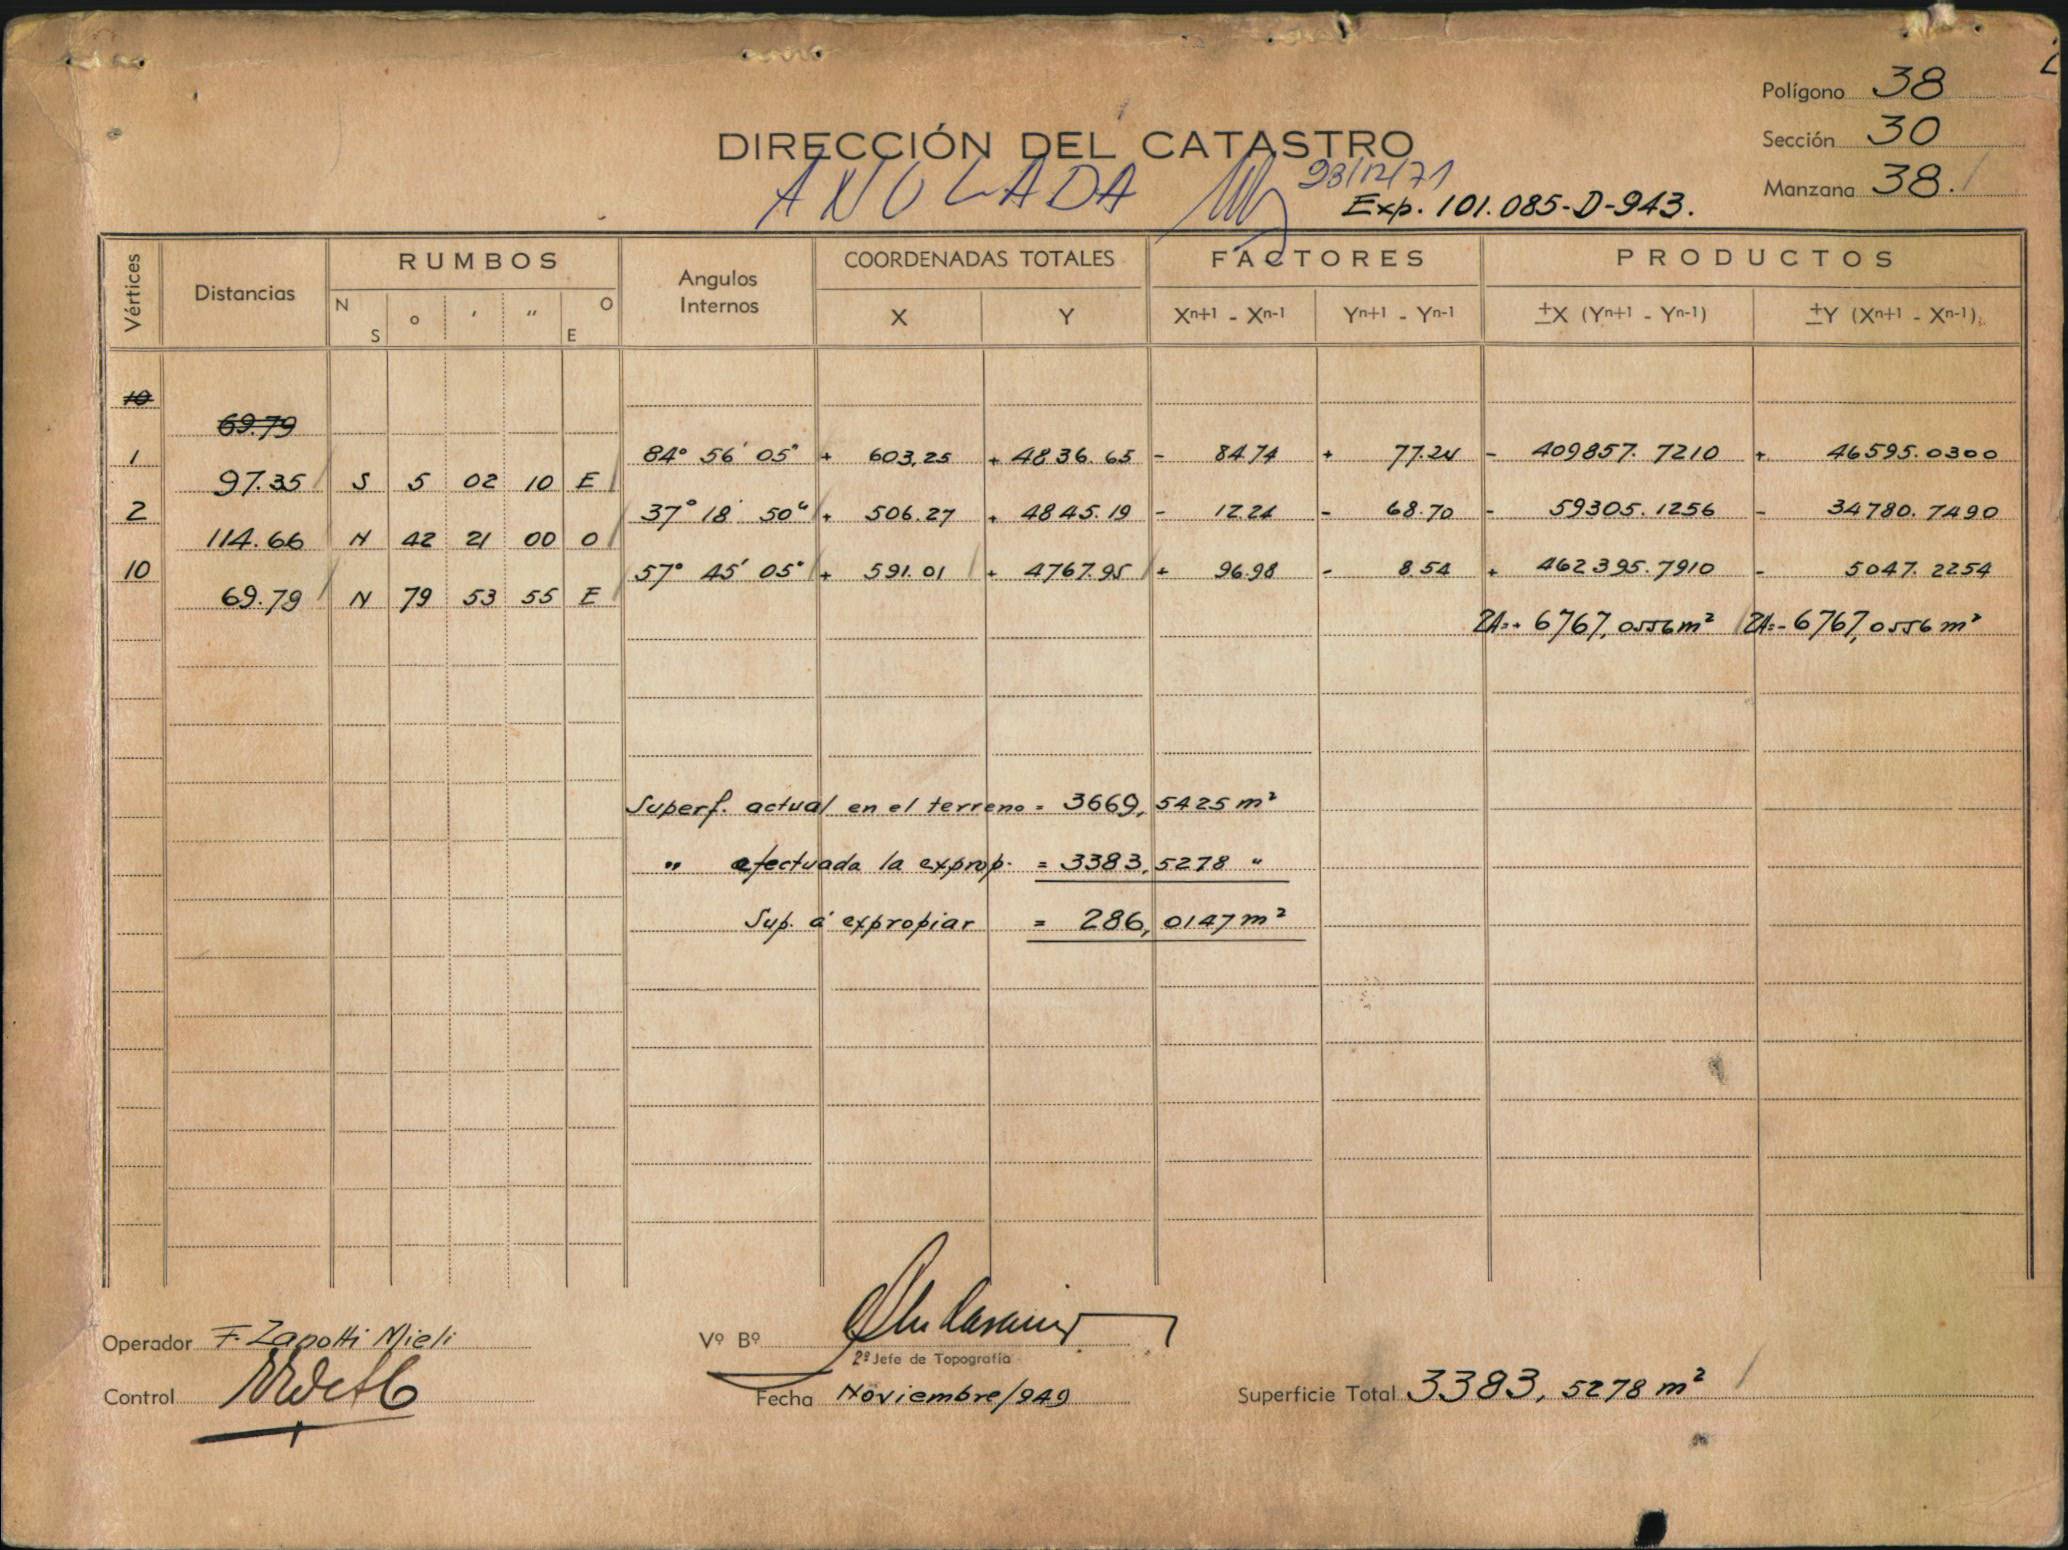 Polígono 38
DIRECCIÓN DEL CATASTRO
Sección 30
ANULADA 23/12/71
Manzana 38.
Exp. 101.085-D-943.
Vértices Distancias RUMBOS Angulos Internos COORDENADAS TOTALES FACTORES PRODUCTOS
N S o ' " O E X Y Xn+1 - Xn-1 Yn+1 - Yn-1 ±X (Yn+1 - Yn-1) ±Y (Xn+1 - Xn-1)
10
69.79
1 84° 56' 05" + 603,25 + 4836.65 - 84.74 + 77.24 - 409857.7210 + 46595.0300
97.35 S 5 02 10 E
2 37° 18' 50" + 506.27 + 4845.19 - 12.24 - 68.70 - 59305.1256 - 34780.7490
114.66 N 42 21 00 O
10 57° 45' 05" + 591.01 + 4767.95 + 96.98 - 8.54 + 462395.7910 - 5047.2254
69.79 N 79 53 55 E
2A=+ 6767,0556 m² 2A=- 6767,0556 m²
Superf. actual en el terreno = 3669,5425 m²
" efectuada la exprop. = 3383,5278 "
Sup. á expropiar = 286,0147 m²
Operador F. Zapotti Mieli
Vº Bº
2º Jefe de Topografía
Control
Fecha Noviembre/949
Superficie Total 3383,5278 m²